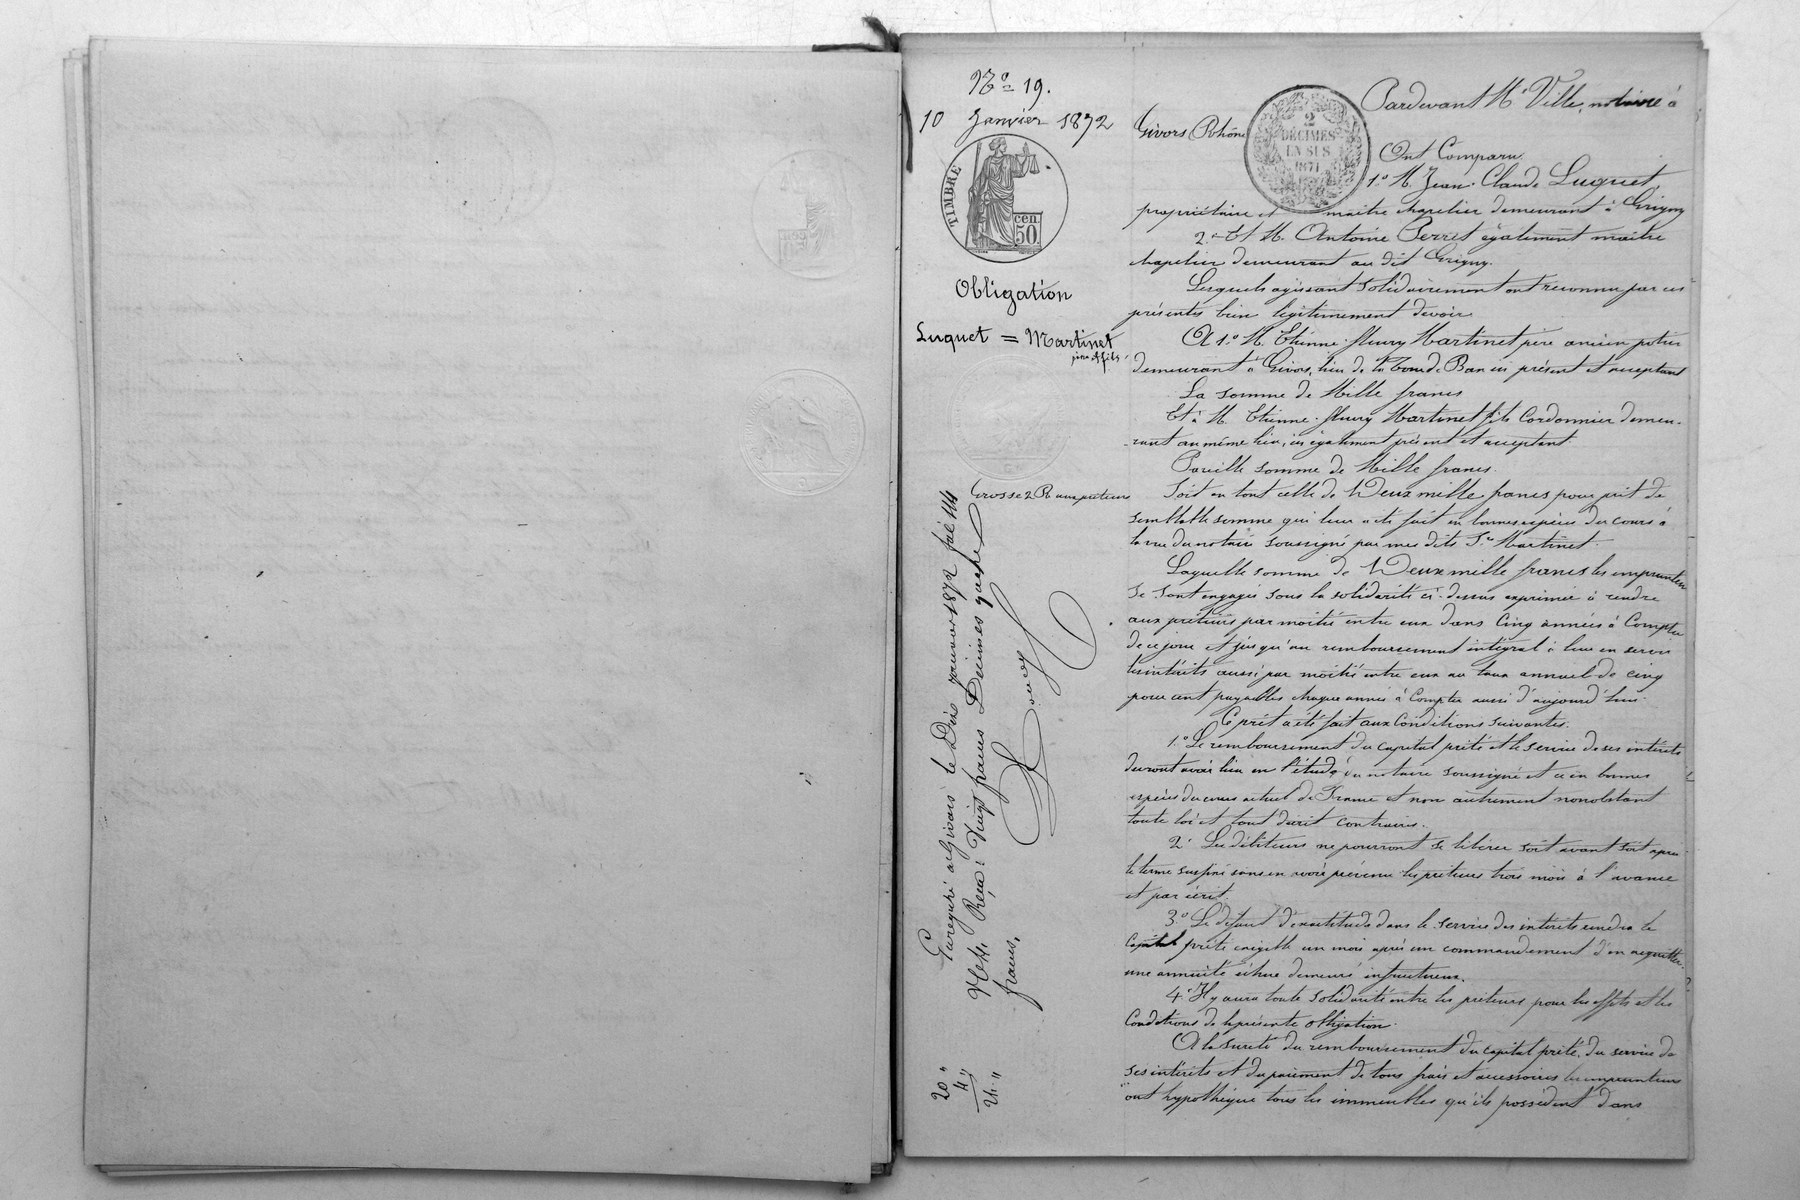 N° 19.
10 Janvier 1872
TIMBRE
cen
50
Obligation
Luquet = Martinet
père & fils
Grosse 2 R aux prêteurs
Enregistré à Givors le Dix janvier 1872 fol 44
Vo C 4. Reçu: Vingt francs Décimes quatre
francs.
20 "
4 "
24 "
2
DÉCIMES
EN SUS
1871
Pardevant Me Ville, notaire à
Givors Rhône
Ont Comparu
1.° M. Jean-Claude Luquet,
propriétaire et maître chapelier demeurant à Grigny
2° Et M. Antoine Perret également maitre
chapelier demeurant au dit Grigny.
Lesquels agissant solidairement ont reconnu par ces
présentes bien légitimement devoir
A 1.° M. Etienne-fleury Martinet père ancien potier
demeurant à Givors, lieu de la Tour de Ban ici présent et acceptant
La somme de Mille francs
Et à M. Etienne-fleury Martinet fils Cordonnier demeu-
-rant au même lieu, ici également présent et acceptant
Pareille somme de Mille francs.
Soit en tout celle de Deux mille francs pour prit de
semblable somme qui leur a été fait en bonnes espèces du cours à
la vue du notaire soussigné par mes dits Srs Martinet.
Laquelle somme de Deux mille francs les emprunteurs
se sont engagés sous la solidarité ci-dessus exprimée à rendre
aux prêteurs par moitié entre eux dans Cinq années à Compter
de ce jour et jusqu'au remboursement intégral à leur en servir
les intérêts aussi par moitié entre eux au taux annuel de cinq
pour cent payables chaque année à Compter aussi d'aujourd'hui.
Ce prêt a été fait aux Conditions suivantes.
1.° Le remboursement du capital prêté et le service de ses intérêts
devront avoir lieu en l'étude du notaire soussigné et ce en bonnes
espèces du cours actuel de France et non autrement nonobstant
toute loi et tout décrit contraires.
2° Les débiteurs ne pourront se libérer soit avant soit après
le terme susfixé sans en avoir prévenu les prêteurs trois mois à l'avance
et par écrit.
3.° Le défaut d'exactitude dans le service des intérêts rendra le
Capital prêté exigible un mois après un commandement d'en acquitter
une annuité échue demeuré infructueux.
4° Il y aura toute solidarité entre les prêteurs pour les effets et les
Conditions de la présente obligation.
A la sureté du remboursement du capital prêté, du service de
ses intérêts et du paiement de tous frais et accessoires les emprunteurs
ont hypothéqué tous les immeubles qu'ils possèdent dans